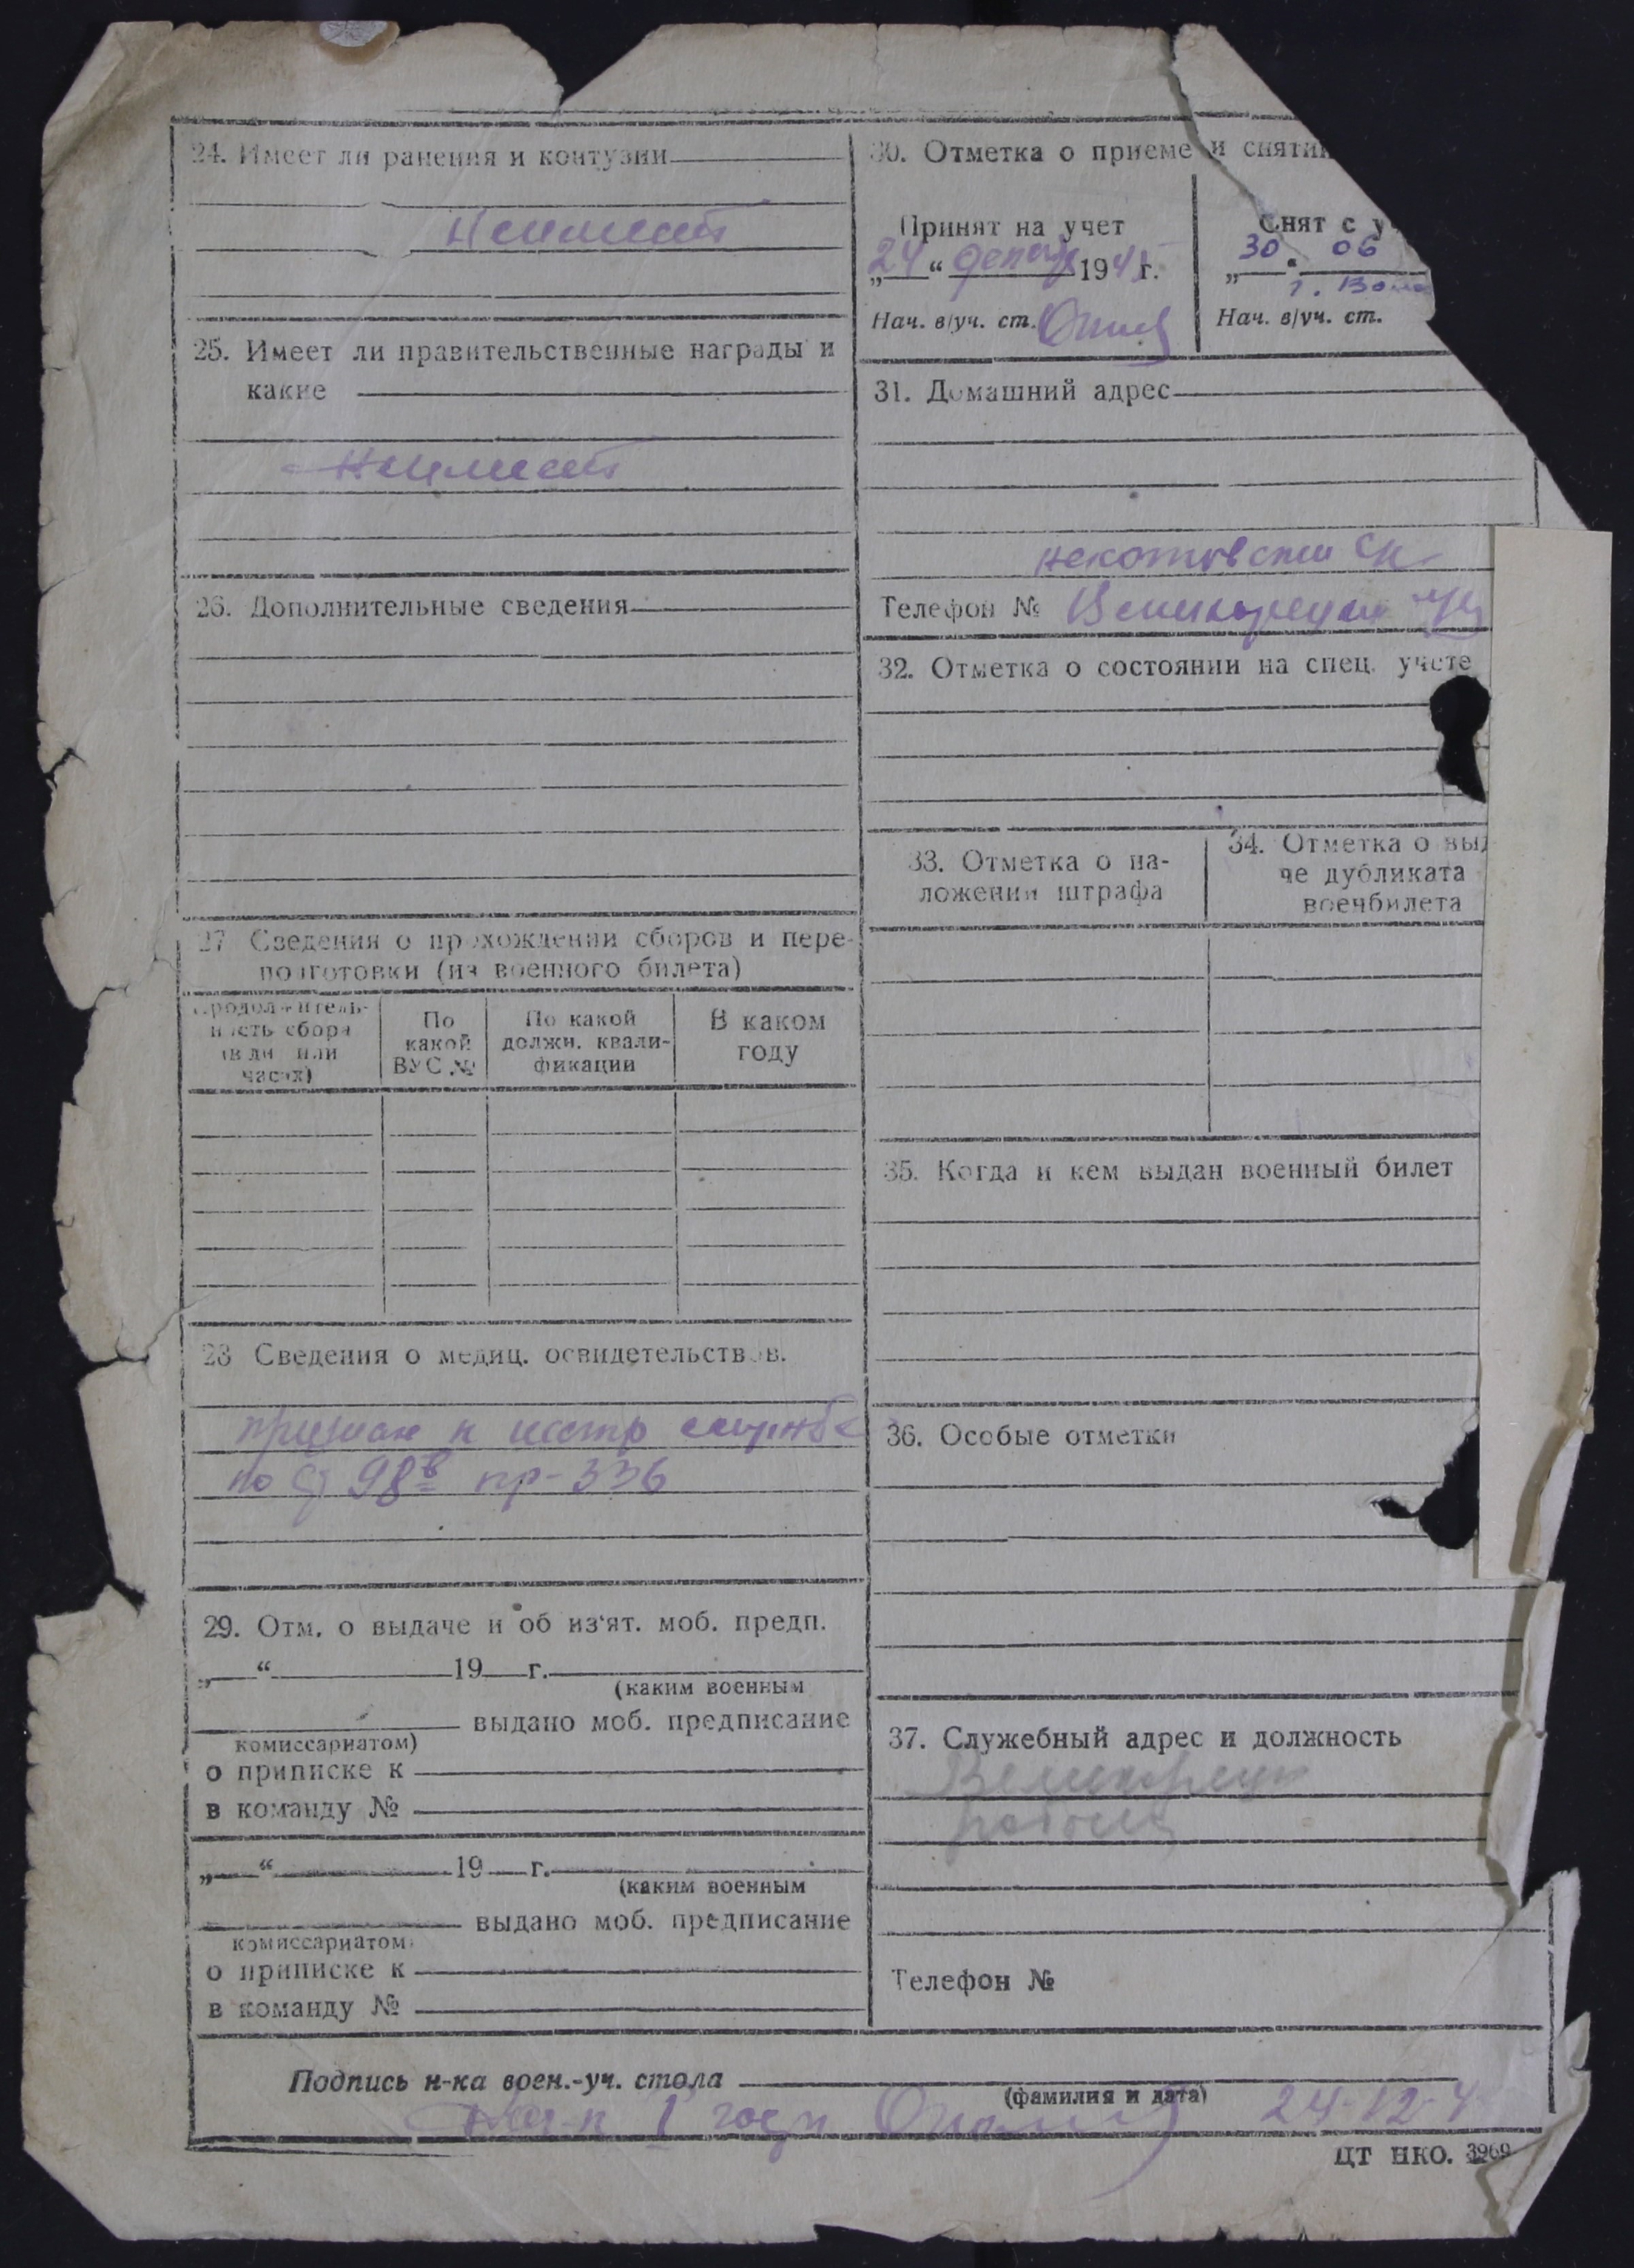 24. Имеет ли ранения и контузии
Неимеет
25. Имеет ли правительственные награды и
какие
Неимеет
26. Дополнительные сведения
27 Сведения о прохождении сборов и пере-
подготовки (из военного билета)
Продолжитель-
ность сбора
(в дн или
часах)
По
какой
ВУС №
По какой
должн. квали-
фикации
В каком
году
28 Сведения о медиц. освидетельствов.
признан к нестр службе
по 98в пр-336
29. Отм. о выдаче и об из'ят. моб. предп.
„ “ 19 г.
(каким военным
выдано моб. предписание
комиссариатом)
о приписке к
в команду №
„ “ 19 г.
(каким военным
выдано моб. предписание
комиссариатом)
о приписке к
в команду №
30. Отметка о приеме и сняти
Принят на учет
„24“ декабр 194 г.
Нач. в/уч. ст.
Снят с у
„30 " 06
Нач. в/уч. ст.
31. Домашний адрес
Телефон №
32. Отметка о состоянии на спец. учете
33. Отметка о на-
ложении штрафа
34. Отметка о выд
че дубликата
воечбилета
35. Когда и кем выдан военный билет
36. Особые отметки
37. Служебный адрес и должность
Телефон №
Подпись н-ка воен.-уч. стола
(фамилия и дата)
24-12-4
ЦТ НКО. 3969